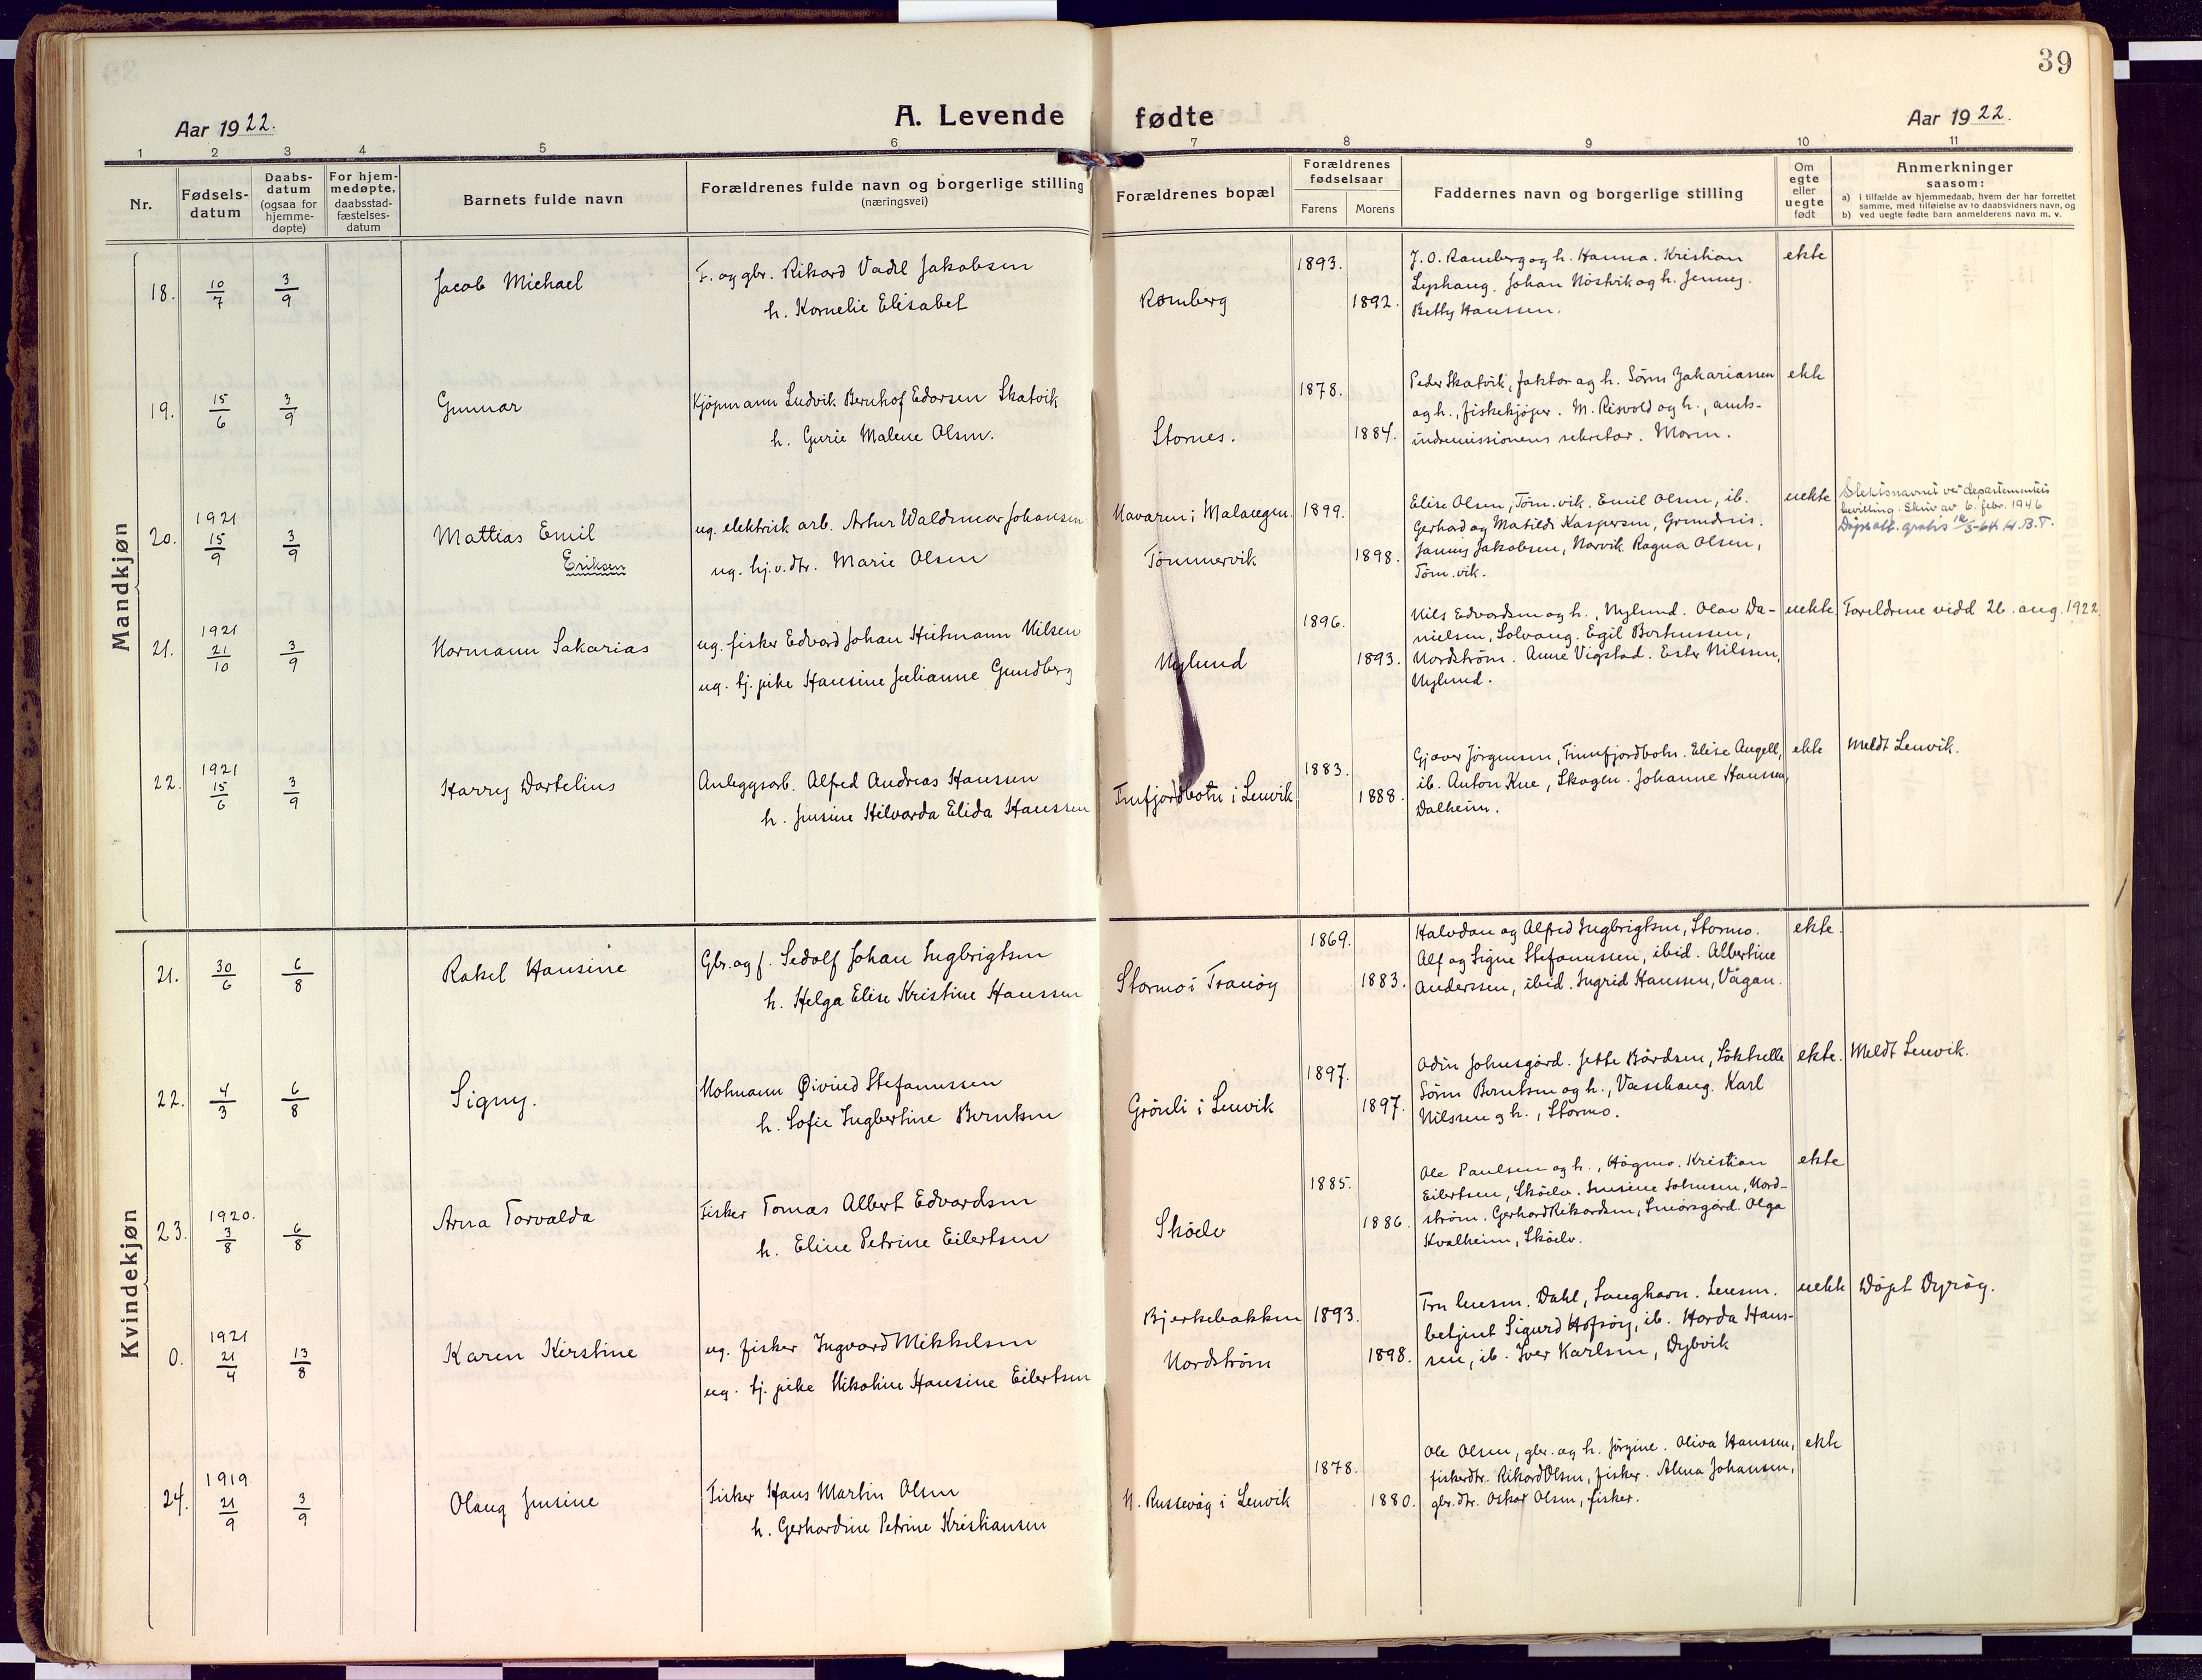 39
A. Levende fødte
Aar 1922.
Aar 1922.
1 2 3 4 5 6 7 8 9 10 11
Nr.
Fødsels-
datum
Daabs-
datum
(ogsaa for
hjemme-
døpte)
For hjem-
medøpte,
daabsstad-
fæstelses-
datum
Barnets fulde navn
Forældrenes fulde navn og borgerlige stilling
(næringsvei)
Forældrenes bopæl
Forældrenes
fødselsaar
Farens Morens
Faddernes navn og borgerlige stilling
Om
egte
eller
uegte
født
Anmerkninger
saasom:
a) i tilfælde av hjemmedaab, hvem der har forrettet
samme, med tilføielse av to daabsvidners navn, og
b) ved uegte fødte barn anmelderens navn m. v.
Mandkjøn
18. 10/7 3/9 Jacob Michael
F. og gbr. Rikard Vadel Jakobsen
h. Kornelie Elisabet
Ramberg
1893.
1892.
J. O. Ramberg og h. Hanna. Kristian
Lyshaug. Johan Nöstvik og h. Jenny.
Betty Hanssen.
ekte
19. 15/6 3/9 Gunnar
Kjöpmann Ludvik Bernhof Edvarsen Skatvik
h. Gurie Malene Olsen.
Stornes.
1878.
1884.
Peder Skatvik, faktor og h. Sören Zakariassen
og h., fiskekjöper. M. Risvold og h., amts-
indremissionens sekretær. Moren.
ekte
20. 1921 15/9 3/9 Mattias Emil
Eriksen
ug. elektrisk arb. Artur Waldemar Johansen
ug. hj.v. dtr. Marie Olsen
Navaren i Malangen.
Tömmervik
1899.
1898.
Elise Olsen, Töm.vik. Emil Olsen, ib.
Gerhard og Matilde Kaspersen, Grundnes.
Janny Jakobsen, Narvik. Ragna Olsen,
Töm.vik.
uekte
Slektsnavnet ved departementets
bevilling. Skriv av 6. febr. 1946
Dåpsatt. gratis 10/3-64 H.B.T.
21. 1921 21/10 3/9 Normann Sakarias
ug. fisker Edvard Johan Heitmann Nilsen
ug. tj. pike Hansine Julianne Gundberg
Nylund
1896.
1893.
Nils Edvardsen og h., Nylund. Olav Da-
nielsen, Solvang. Egil Berthussen,
Nordström. Anne Vigstad. Ester Nilssen,
Nylund.
uekte
Foreldrene viedd 26. aug. 1922.
22. 1921 15/6 3/9 Harry Dortelius
Anleggsarb. Alfred Andreas Hanssen
h. Jensine Hilvarda Elida Hanssen
Finfjordbotn i Lenvik
1883.
1888.
Gjøver Jörgensen, Finnfjordbotn. Elise Angell,
ib. Anton Kue, Skogen. Johanne Hanssen,
Dalheim.
ekte
Meldt Lenvik.
Kvindekjøn
21. 30/6 6/8 Rakel Hansine
Gbr. og f. Sedolf Johan Ingbrigtsen
h. Helga Elise Kristine Hanssen
Stormo i Tranöy
1869.
1883.
Halvdan og Alfred Ingbrigtsen, Stormo.
Alf og Signe Stefanussen, ibid. Albertine
Anderssen, ibid. Ingrid Hanssen, Vågan.
ekte.
22. 4/3 6/8 Signy.
Motmann Øivind Stefanussen
h. Sofie Ingbertine Berntsen
Grönli i Lenvik
1897.
1897.
Odin Johnsgård. Jette Bårdsen, Löktvelle
Sören Berntsen og h., Vasshaug. Karl
Nilssen og h., Stormo.
ekte.
Meldt Lenvik.
23. 1920. 3/8 6/8 Arna Torvalda
Fisker Tomas Albert Edvardsen
h. Eline Petrine Eilertsen
Sköelv
1885.
1886.
Ole Paulsen og h., Högmo. Kristian
Eilertsen, Sköelv. Jensine Johnsen, Nord-
ström. Gerhard Rikardsen, Smörsgård. Olga
Kvalheim, Sköelv.
ekte
0. 1921 21/4 13/8 Karen Kirstine
ug. fisker Ingvard Mikkelsen
ug. tj. pike Nikoline Hansine Eilertsen
Bjerkebakken
Nordström
1893.
1898.
Fru lensm. Dahl, Langhavn. Lensm.
betjent Sigurd Hofsöy, ib. Horda Hans-
sen, ib. Iver Karlsen, Dybvik
uekte
Döpt Dyröy.
24. 1919 21/9 3/9 Olaug Jensine
Fisker Hans Martin Olsen
h. Gerhardine Petrine Kristiansen
N. Russevåg i Lenvik
1878.
1880.
Ole Olsen, gbr. og h. Jörgine. Oliva Hanssen,
fiskerdtr. Rikard Olsen, fisker. Alma Johansen,
gbr. dtr. Oskar Olsen, fisker.
ekte